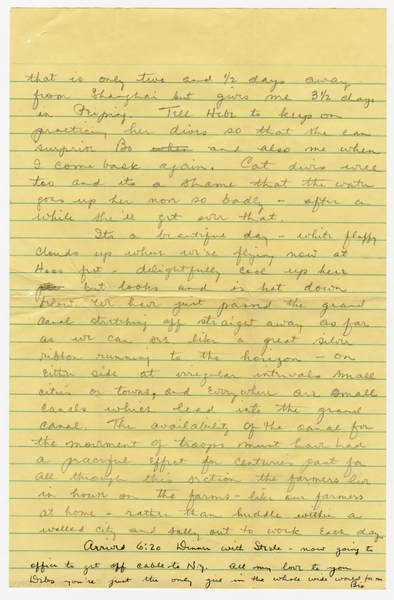 that is only two and 1/2 days away
from Shanghai but gives me 3 1/2 days
in Peiping. Tell Hebe to keep on
practicing her dives so that she can
surprise Bo and also me when
I come back again. Cat dives well
too and its a shame that the water
goes up her nose so badly - after a
while she'll get over that.
Its a beautiful day - white fluffy
clouds up where we're flying now at
feet - delightfully cool up here
but looks and is hot down
below. We have just passed the grand
canal stretching off straight away as far
as we can see like a great silver
ribbon running to the horizon - on
either side at irregular intervals small
cities or towns, and everywhere are small
canals which lead into the grand
canal. The availability of the canal for
the movement of troops must have had
a peaceful effect for centuries past for
all through this section the farmers live
in houses on the farms - like our farmers
at home - rather than huddle within a
walled city and sally out to work each day.
Arrived 6:20 Dinner with Steele - now going to
office to get off cable to N.Y. All my love to you
you're just the only gee in the whole wide world for me
Bo